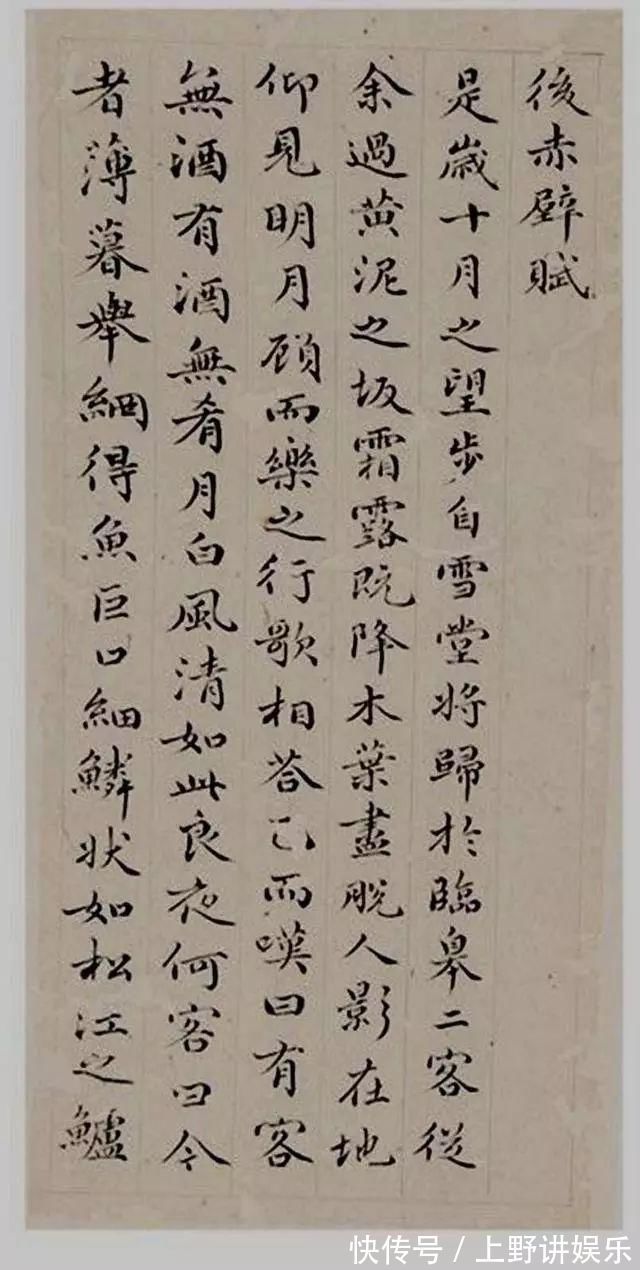 後赤壁賦
是歲十月之望步自雪堂將歸於臨皋二客從
余過黄泥之坂霜露既降木葉盡脫人影在地
仰見明月顧而樂之行歌相答已而嘆曰有客
無酒有酒無肴月白風清如此良夜何客曰今
者薄暮舉網得魚巨口細鱗狀如松江之鱸
快传号/上野讲娱乐